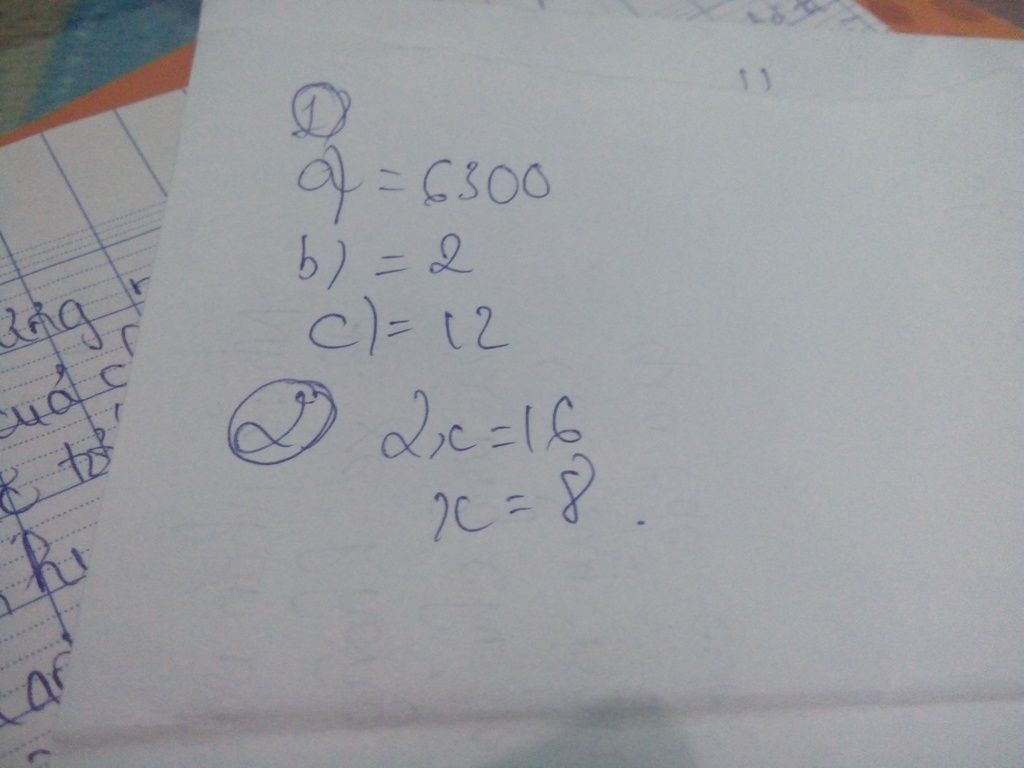 1)
a) = 6300
b) = 2
c) = 12
2) 2x = 16
x = 8.
cuả
tổ